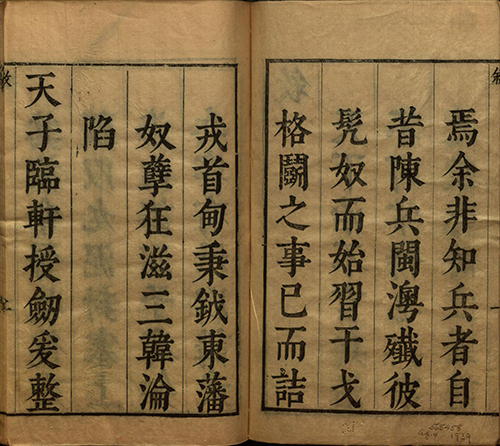 焉余非知兵者自
昔陳兵閩澚殲彼
髡奴而始習干戈
格鬭之事已而詰
戎首甸秉鉞東藩
奴孽狂滋三韓淪
陷
天子臨軒授劒爰整
1839